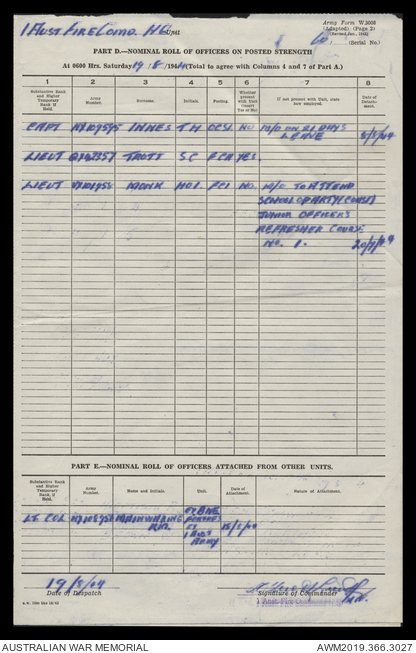 1 Aust Fire Comd HQ Unit
Army Form W.3008
(Adapted) (Page 2)
(Revised Jan., 1942)
(Serial No.)
PART D.—NOMINAL ROLL OF OFFICERS ON POSTED STRENGTH
At 0600 Hrs. Saturday 19 / 8 / 1944 (Total to agree with Columns 4 and 7 of Part A.)
1 2 3 4 5 6 7 8
Substantive Rank and Higher Temporary Rank if Held.
Army Number.
Surname.
Initials.
Posting.
Whether present with Unit (Insert Yes or No)
If not present with Unit, state how employed.
Date of Detachment.
CAPT INNES T H NO M/O ON 21 DAYS
LEAVE
LIEUT TROTT S C YES.
LIEUT MONK NO. M/O TO ATTEND
SCHOOL OF ARTY (COAST)
JUNIOR OFFICERS
REFRESHER COURSE
NO. 1.
PART E.—NOMINAL ROLL OF OFFICERS ATTACHED FROM OTHER UNITS.
Substantive Rank and Higher Temporary Rank if Held.
Army Number.
Name and Initials.
Unit.
Date of Attachment.
Nature of Attachment.
LT COL MAINWARING
R.M.
1 AUST
ARMY
15/8/44
19/8/44
Date of Despatch
Signature of Commander
AUSTRALIAN WAR MEMORIAL
AWM2019.366.3027